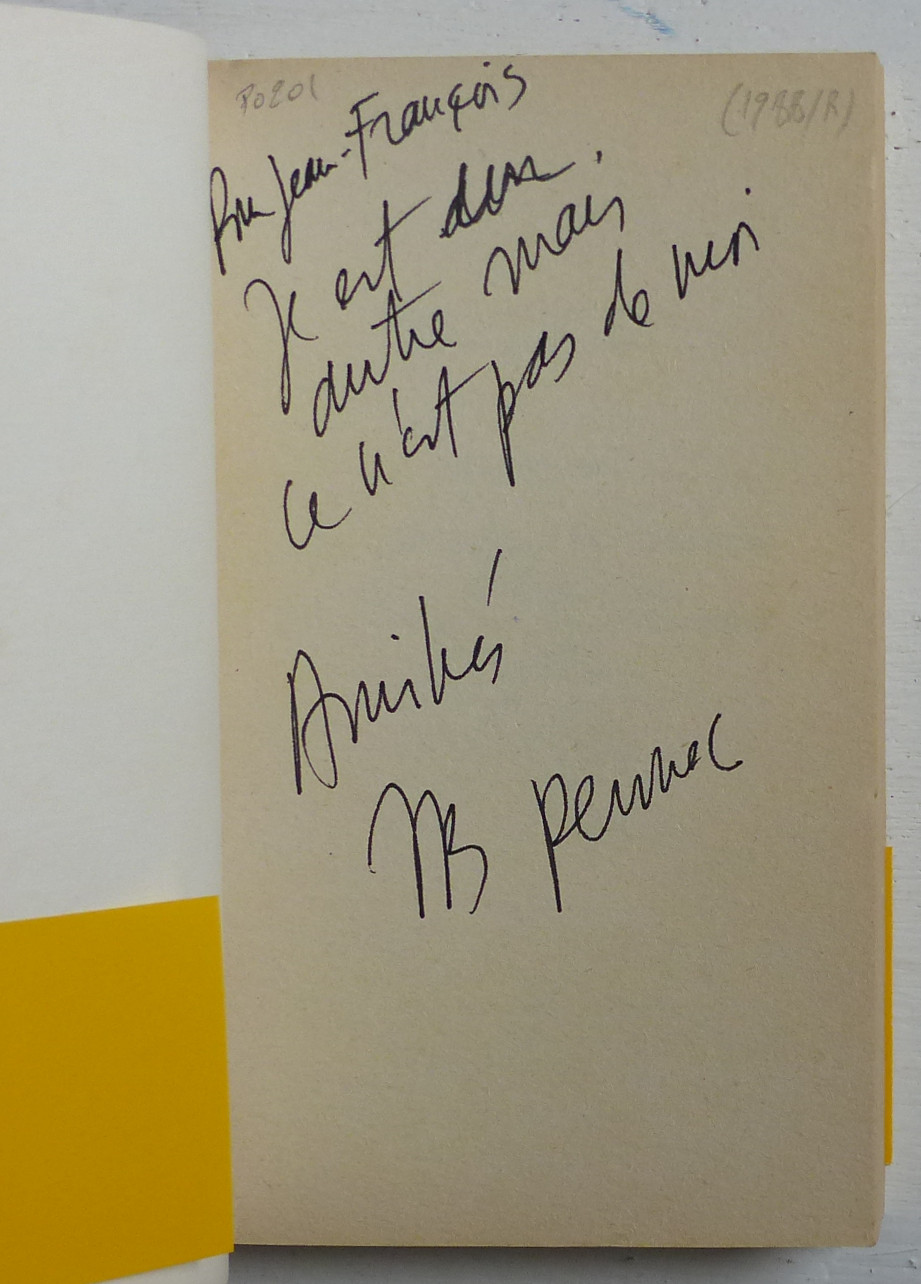 (1988/R)
Pour Jean-François
Je est
autre mais
ce n'est pas de moi
Amitiés
Pennac